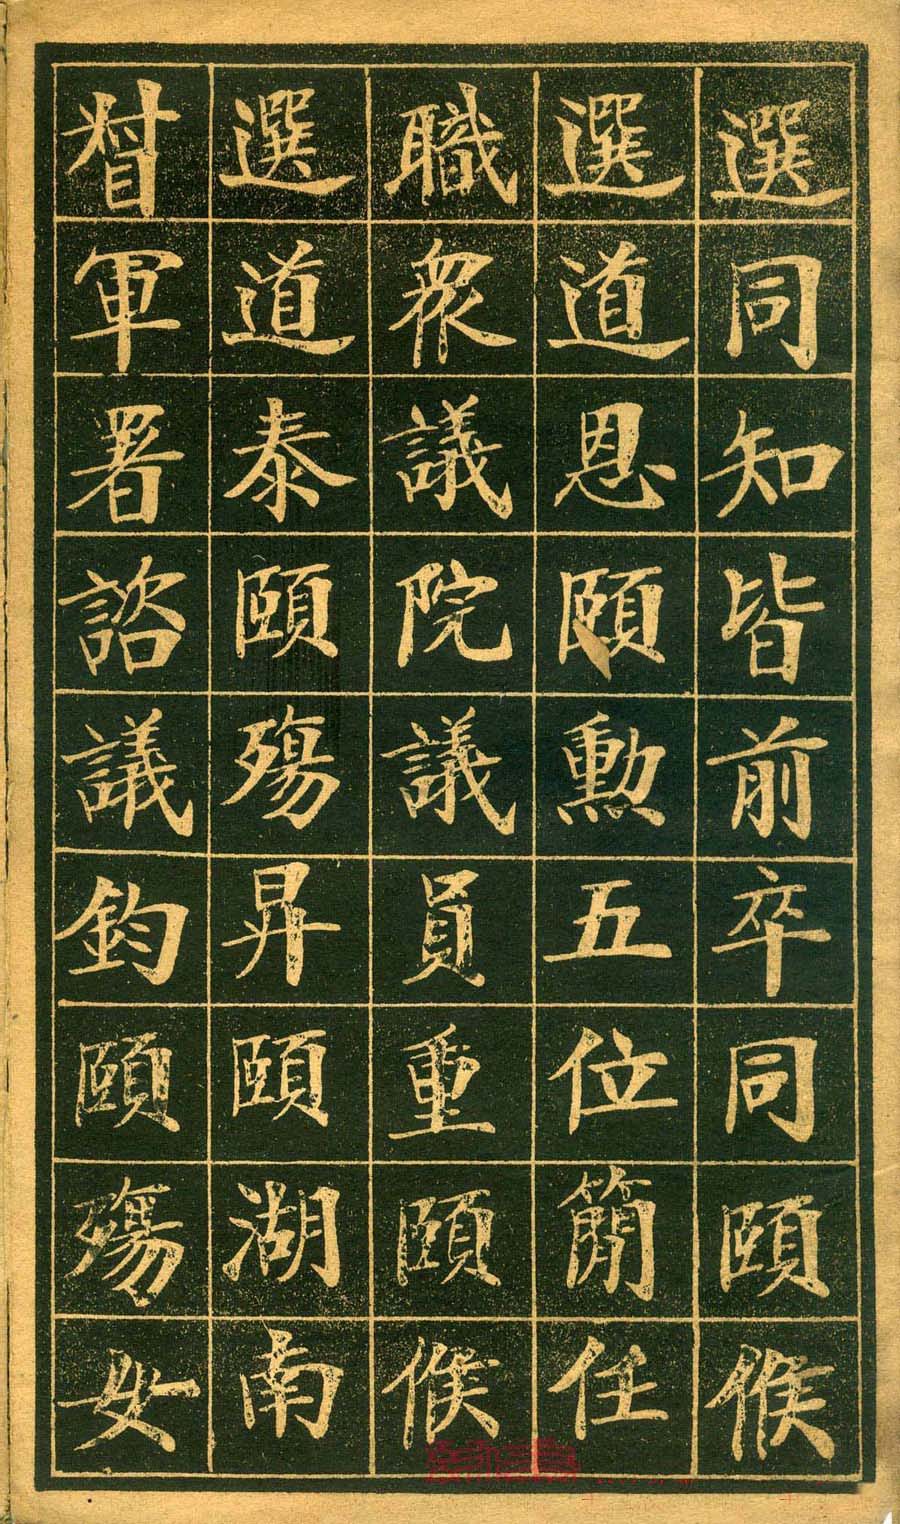 選同知皆前卒同頤候
選道恩頤勲五位簡任
職衆議院議員重頤候
選道泰頤殤昇頤湖南
督軍署諮議鈞頤殤女